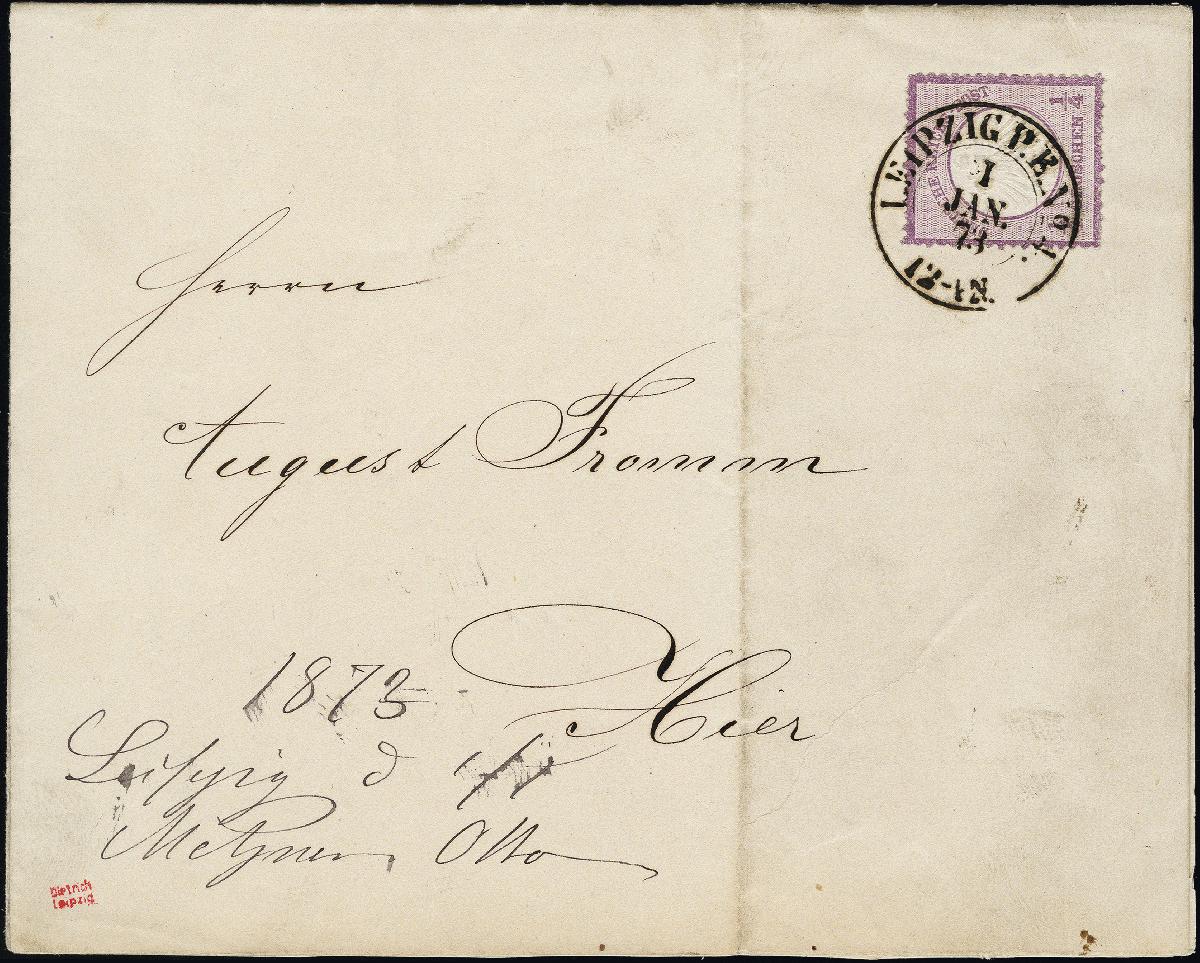 LEIPZIG P.E.No 1.
1
JAN.
73
12-1N.
1/4
Herrn
August Fromm
Hier
1873
Leipzig d 1/1
Metzner, Otto
Dietrich
Leipzig